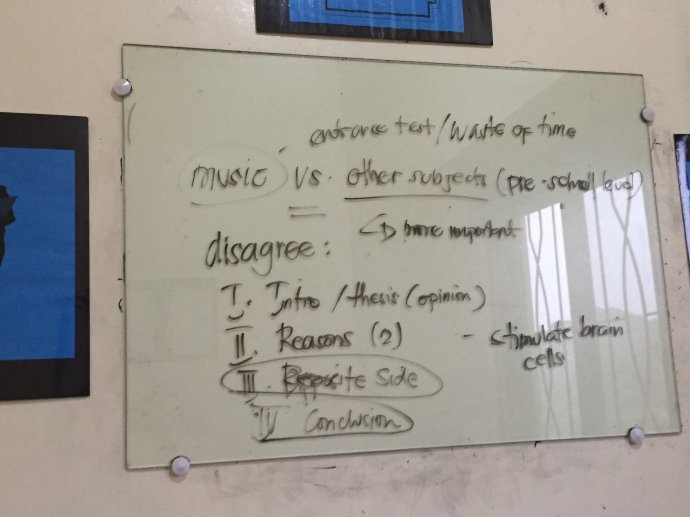 - entrance test/Waste of time
music vs. other subjects (pre-school level)
↳ more important
disagree:
I. Intro / thesis (opinion)
II. Reasons (2) - stimulate brain cells
III. Opposite Side
IV Conclusion